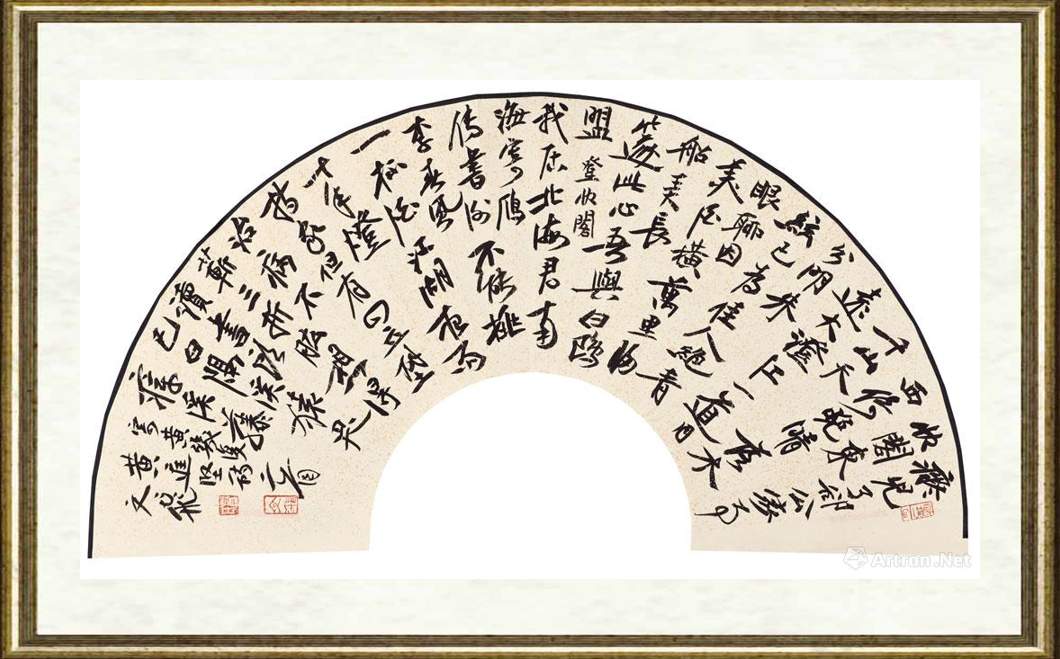 癡兒了卻公家事
快閣東
西倚晚晴落木
千山天
遠大澄江一道月
分明朱
絃已為佳人絕青
眼聊因
美酒橫萬里歸
船弄長
笛此心吾與白鷗
盟 登快閣
我居北海君南
海寄雁
傳書謝不能桃
李春風
一杯酒江湖夜雨
十年燈
持家但有四立壁
治病不
蘄三折肱想得
讀書頭
已白隔溪猿哭
瘴溪藤
寄黃幾復
黃庭堅詩
Artron.Net